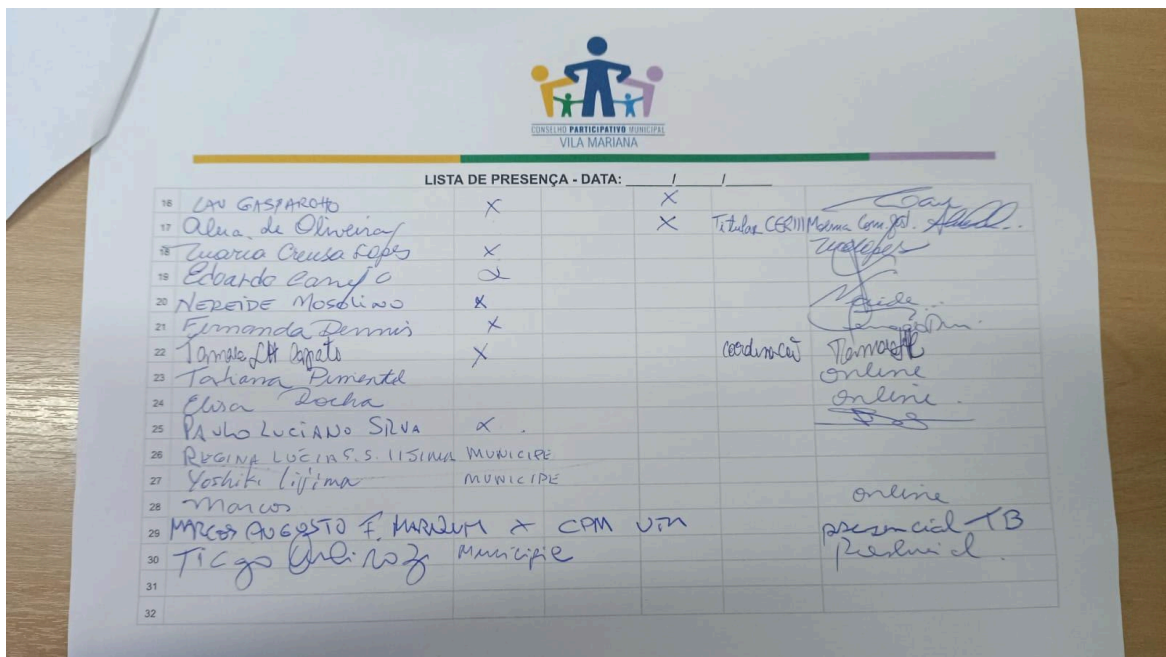 CONSELHO PARTICIPATIVO MUNICIPAL
VILA MARIANA
LISTA DE PRESENÇA - DATA: ____/____/____
16 LAU GASPAROTTO X X
17 de Oliveira X Titular CERIII
18 Maria Creusa Lopes X
19 Eduardo X
20 NEREIDE MOSOLINO X
21 Fernanda Dennis X
22 X coordenação
23 Tatiana Pimentel online
24 Elisa Rocha online
25 PAULO LUCIANO SILVA X
26 REGINA LUCIA S.S. IISIMA MUNICIPE
27 Yoshiki Iijima MUNICIPE
28 Marcos online
29 MARCOS AUGUSTO F. X CPM presencial TB
30 Tiago Queiroz Municipie Presencial
31
32